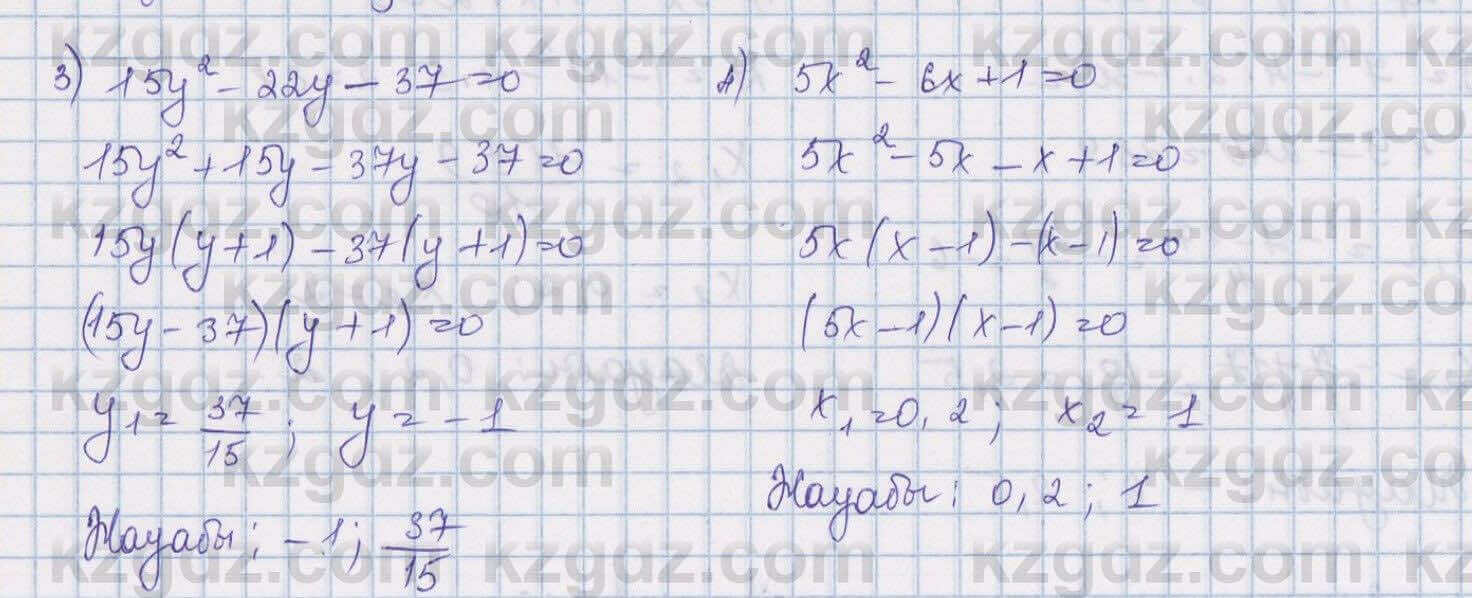 3) 15y² - 22y - 37 = 0
15y² + 15y - 37y - 37 = 0
15y(y+1) - 37(y+1) = 0
(15y - 37)(y+1) = 0
y₁ = 37/15 ; y = -1
Жауабы: -1; 37/15
4) 5x² - 6x + 1 = 0
5x² - 5x - x + 1 = 0
5x(x-1) - (x-1) = 0
(5x-1)(x-1) = 0
x₁ = 0,2 ; x₂ = 1
Жауабы: 0,2 ; 1
kzgdz.com